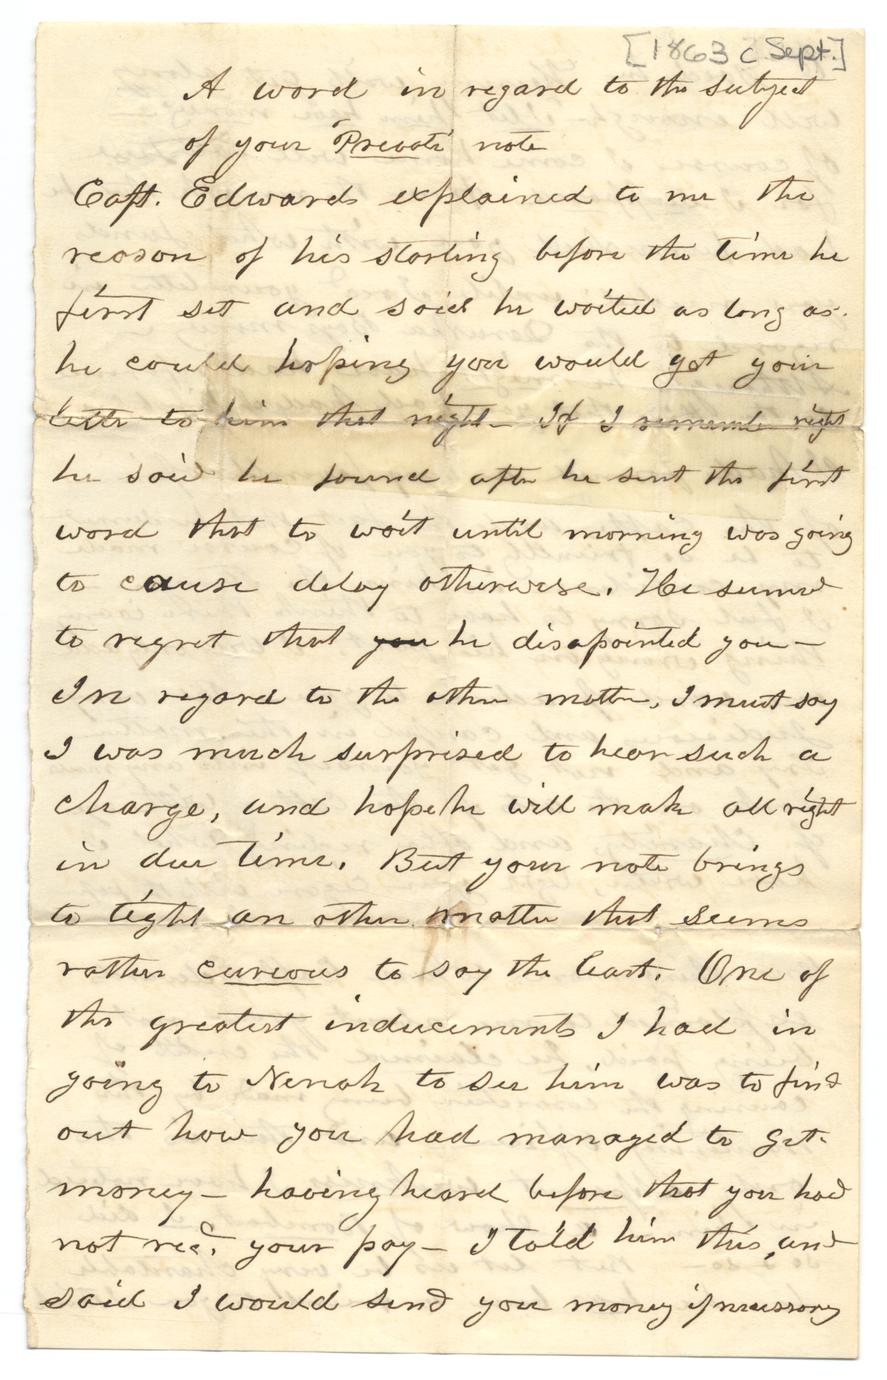 [1863 c Sept.]
A word in regard to the subject
of your "Private" note
Capt. Edwards explained to me the
reason of his starting before the time he
first set and said he waited as long as
he could hoping you would get your
letter to him that night - If I remember right
he said he found after he sent the first
word that to wait until morning was going
to cause delay otherwise. He seemed
to regret that you he disapointed you -
In regard to the other matter, I must say
I was much surprised to hear such a
charge, and hope he will make all right
in due time. But your note brings
to light an other matter that seems
rather cureous to say the least. One of
the greatest inducements I had in
going to Nenah to see him was to find
out how you had managed to get
money - having heard before that you had
not recd. your pay - I told him this, and
said I would send you money if necessary